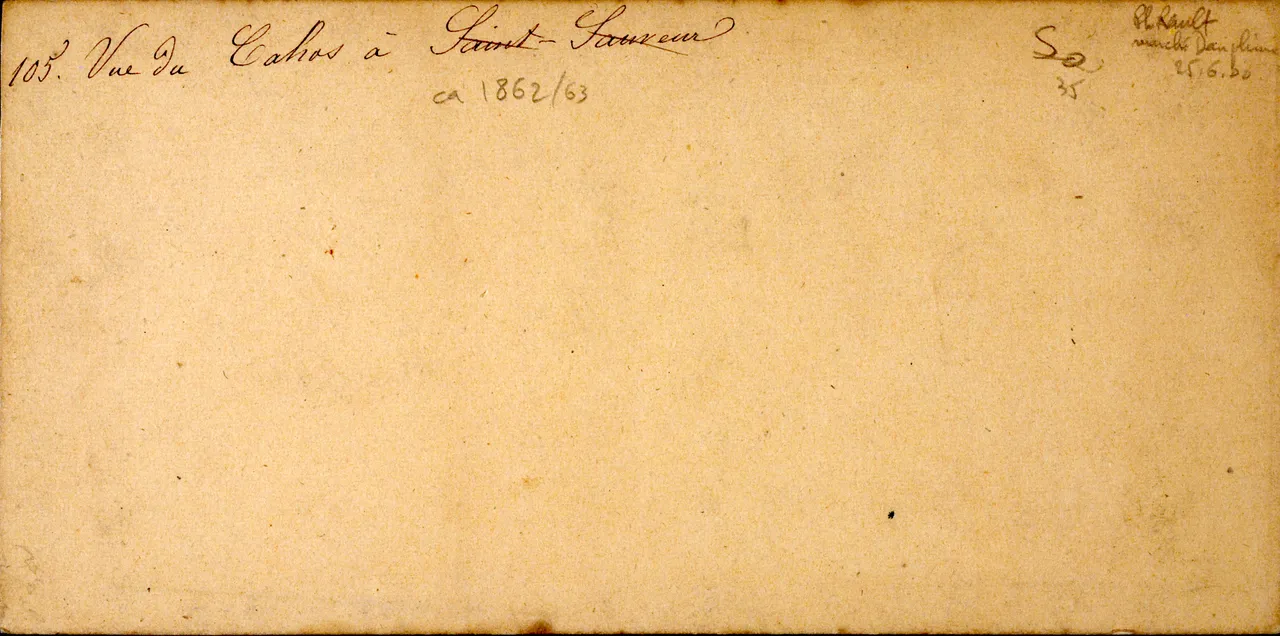 105. Vue du Cahos à Saint-Sauveur
ca 1862/63
So
35
Ph. Rault
marché Dauphine
25.6.00